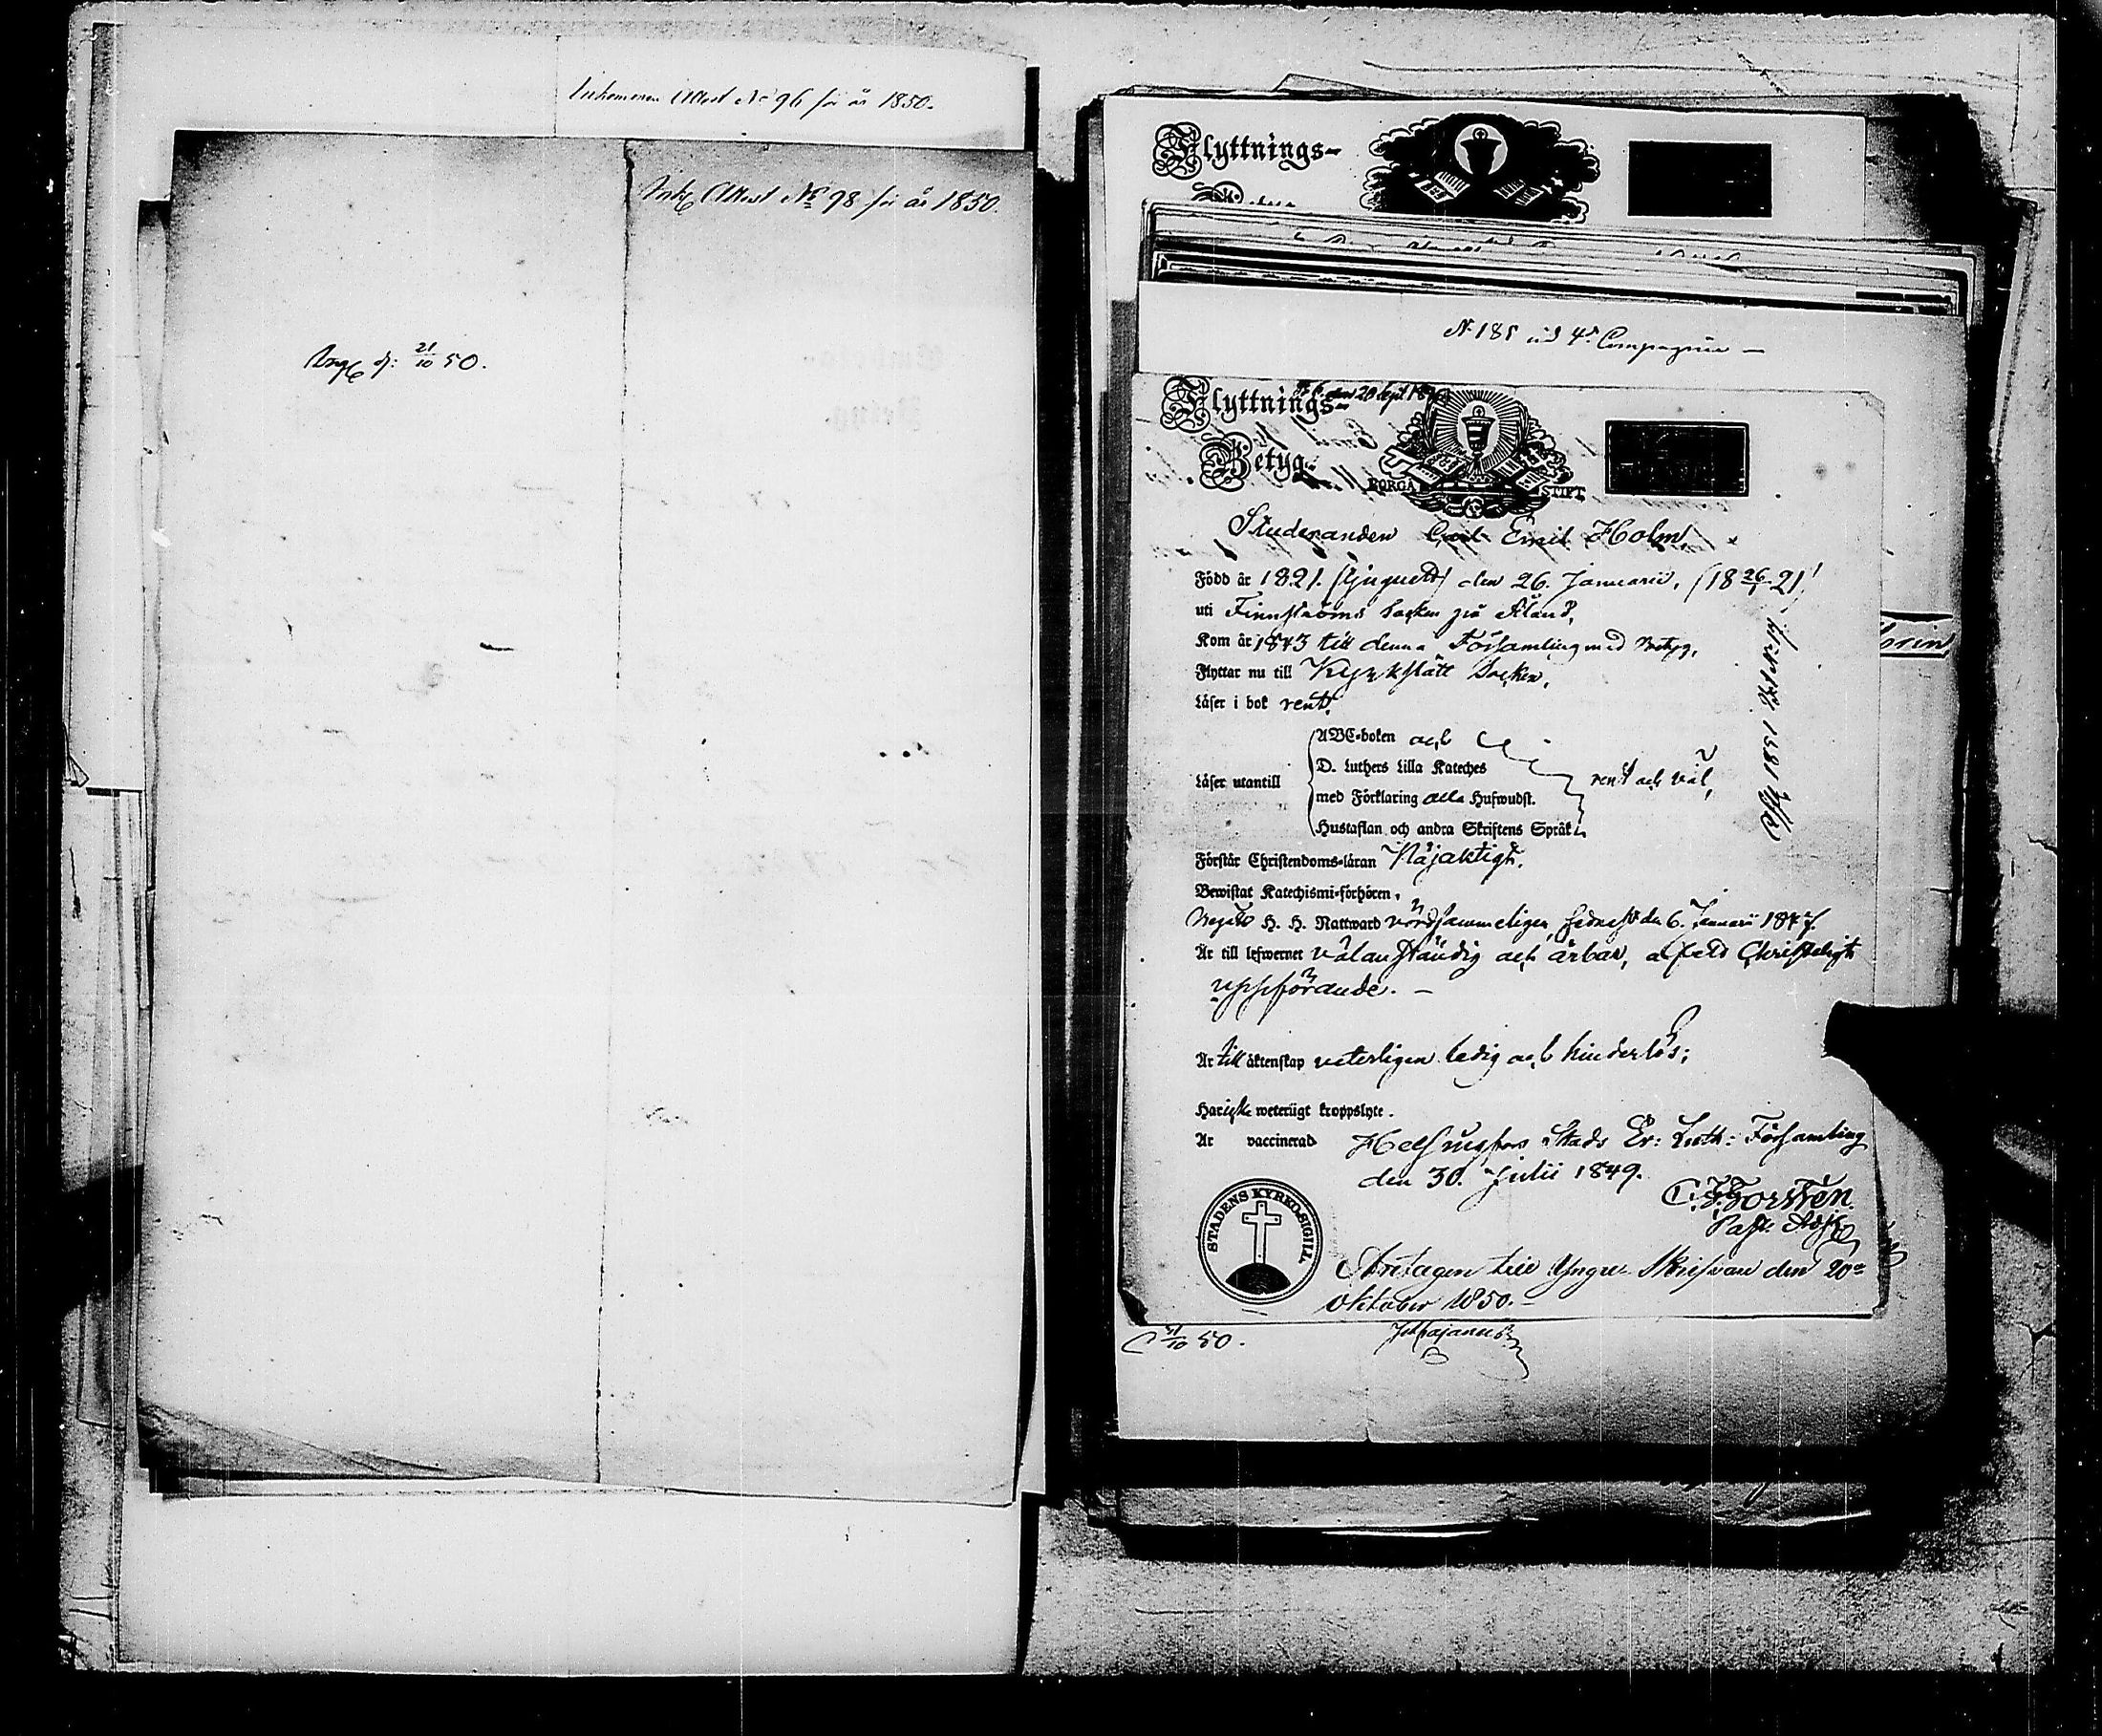 Inkommen Attest No 96 för år 1850.
Ink Attest No 98 för år 1850.
d: 21/10 50.
Flyttnings-
No 185 vid 4de Compagnie —
Flyttnings-
den 20 Sept
Betyg
BORGÅ STIFT
Studeranden Carl Emil Holm,
Född år 1821. (tjuguett) den 26. Januarii, (18 26/1 21)
uti Finnströms Socken på Åland,
Kom år 1843 till denna Församling med Betyg,
Flyttar nu till Kyrkslätt Socken,
Läser i bok rent,
ABC-boken och
D. Luthers Lilla Kateches
Läser utantill
rent och väl,
med Förklaring alla Hufwudst.
Hustaflan och andra Skriftens Språk
Förstår Christendoms-läran Nöjaktigt.
Bewistat Katechismi-förhören,
Begått H. H. Nattward vördsammeligen, sednast den 6. Januarii 1847.
Är till lefwernet välanständig och ärbar, af ett Christeligt
uppförande. —
Är till äktenskap veterligen ledig och hinderlös;
Har icke weterligt kroppslyte.
Är vaccinerad
Helsingfors Stads Ev: Luth: Församling
den 30. Julii 1849.
C. F. Forstén.
Past. Adj.
STADENS KYRKO-SIGILL
Antagen till Yngre Skrifvare den 20de
Oktober 1850. —
21/10 50.